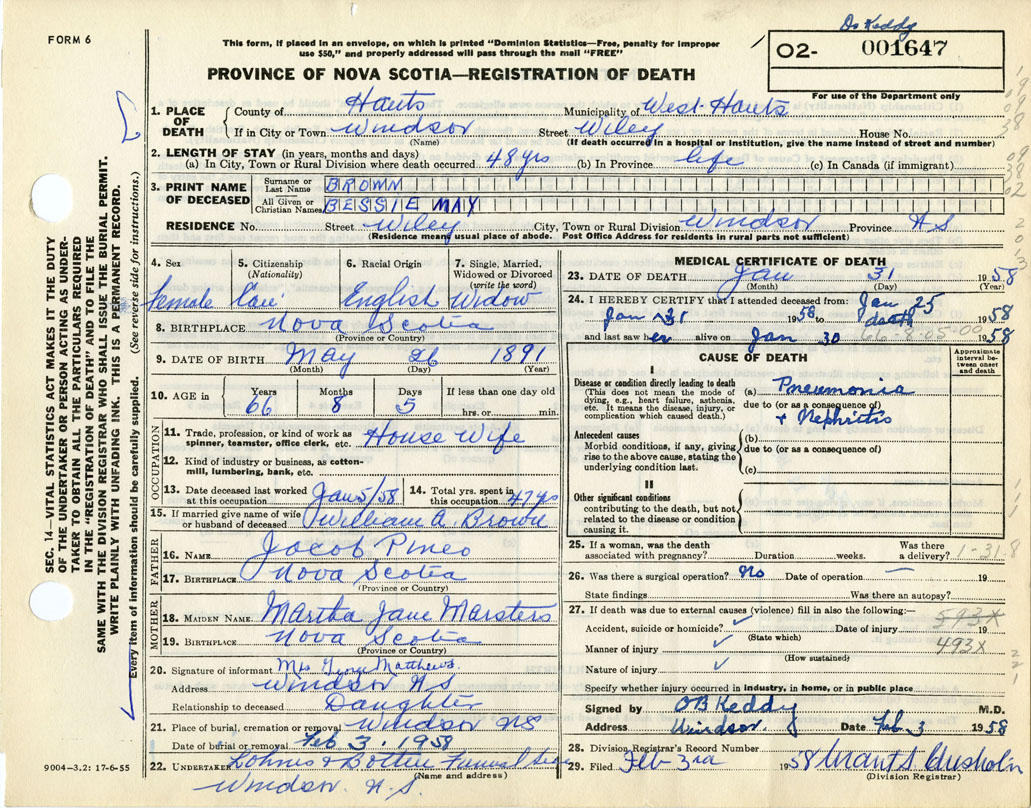 FORM 6
This form, if placed in an envelope, on which is printed "Dominion Statistics—Free, penalty for improper
use $50," and properly addressed will pass through the mail "FREE"
Dr Keddy
02- 001647
For use of the Department only
PROVINCE OF NOVA SCOTIA—REGISTRATION OF DEATH
SEC. 14—VITAL STATISTICS ACT MAKES IT THE DUTY
OF THE UNDERTAKER OR PERSON ACTING AS UNDER-
TAKER TO OBTAIN ALL THE PARTICULARS REQUIRED
IN THE "REGISTRATION OF DEATH" AND TO FILE THE
SAME WITH THE DIVISION REGISTRAR WHO SHALL ISSUE THE BURIAL PERMIT.
WRITE PLAINLY WITH UNFADING INK. THIS IS A PERMANENT RECORD.
Every item of information should be carefully supplied. (See reverse side for instructions.)
1. PLACE OF DEATH
County of Hants Municipality of West Hants
If in City or Town Windsor Street Wiley House No.
(Name) (If death occurred in a hospital or institution, give the name instead of street and number)
2. LENGTH OF STAY (in years, months and days)
(a) In City, Town or Rural Division where death occurred 48 yrs (b) In Province life (c) In Canada (if immigrant)
3. PRINT NAME OF DECEASED
Surname or Last Name BROWN
All Given or Christian Names BESSIE MAY
RESIDENCE No. Street Wiley City, Town or Rural Division Windsor Province N S
(Residence means usual place of abode. Post Office Address for residents in rural parts not sufficient)
4. Sex 5. Citizenship (Nationality) 6. Racial Origin 7. Single, Married, Widowed or Divorced (write the word)
Female Can English Widow
8. BIRTHPLACE Nova Scotia
(Province or Country)
9. DATE OF BIRTH May 26 1891
(Month) (Day) (Year)
10. AGE in Years Months Days If less than one day
66 8 5 hrs. or min.
OCCUPATION
11. Trade, profession, or kind of work as spinner, teamster, office clerk, etc. House Wife
12. Kind of industry or business, as cotton-mill, lumbering, bank, etc.
13. Date deceased last worked at this occupation Jan 5/58 14. Total yrs. spent in this occupation 47 yrs
15. If married give name of wife or husband of deceased William A. Brown
FATHER
16. NAME Jacob Pineo
17. BIRTHPLACE Nova Scotia
(Province or Country)
MOTHER
18. MAIDEN NAME Martha Jane Marsters
19. BIRTHPLACE Nova Scotia
(Province or Country)
20. Signature of informant Mrs George Matthews
Address Windsor N.S
Relationship to deceased Daughter
21. Place of burial, cremation or removal Windsor NS
Date of burial or removal Feb 3, 1958
22. UNDERTAKER Funeral
(Name and address)
Windsor. N.S.
9004-3.2: 17-6-55
MEDICAL CERTIFICATE OF DEATH
23. DATE OF DEATH Jan 31 1958
(Month) (Day) (Year)
24. I HEREBY CERTIFY that I attended deceased from: Jan 25
Jan 31 1958 to death 1958
66-8-05-00
and last saw her alive on Jan 30 1958
CAUSE OF DEATH
Approximate interval between onset and death
I
Disease or condition directly leading to death
(This does not mean the mode of dying, e.g., heart failure, asthenia, etc. It means the disease, injury, or complication which caused death.)
(a) Pneumonia
due to (or as a consequence of)
& Nephritis
Antecedent causes
Morbid conditions, if any, giving rise to the above cause, stating the underlying condition last.
(b)
due to (or as a consequence of)
(c)
II
Other significant conditions
contributing to the death, but not related to the disease or condition causing it.
25. If a woman, was the death associated with pregnancy? Duration weeks. Was there a delivery? 1-31-8
26. Was there a surgical operation? No Date of operation — 19
State findings Was there an autopsy?
27. If death was due to external causes (violence) fill in also the following:—
Accident, suicide or homicide? ✓ Date of injury 19
(State which)
593X
Manner of injury ✓ 493X
(How sustained)
Nature of injury ✓
Specify whether injury occurred in industry, in home, or in public place
Signed by OB Keddy M.D.
Address Windsor. Date Feb 3 1958
28. Division Registrar's Record Number
29. Filed Feb 3rd 1958
(Division Registrar)